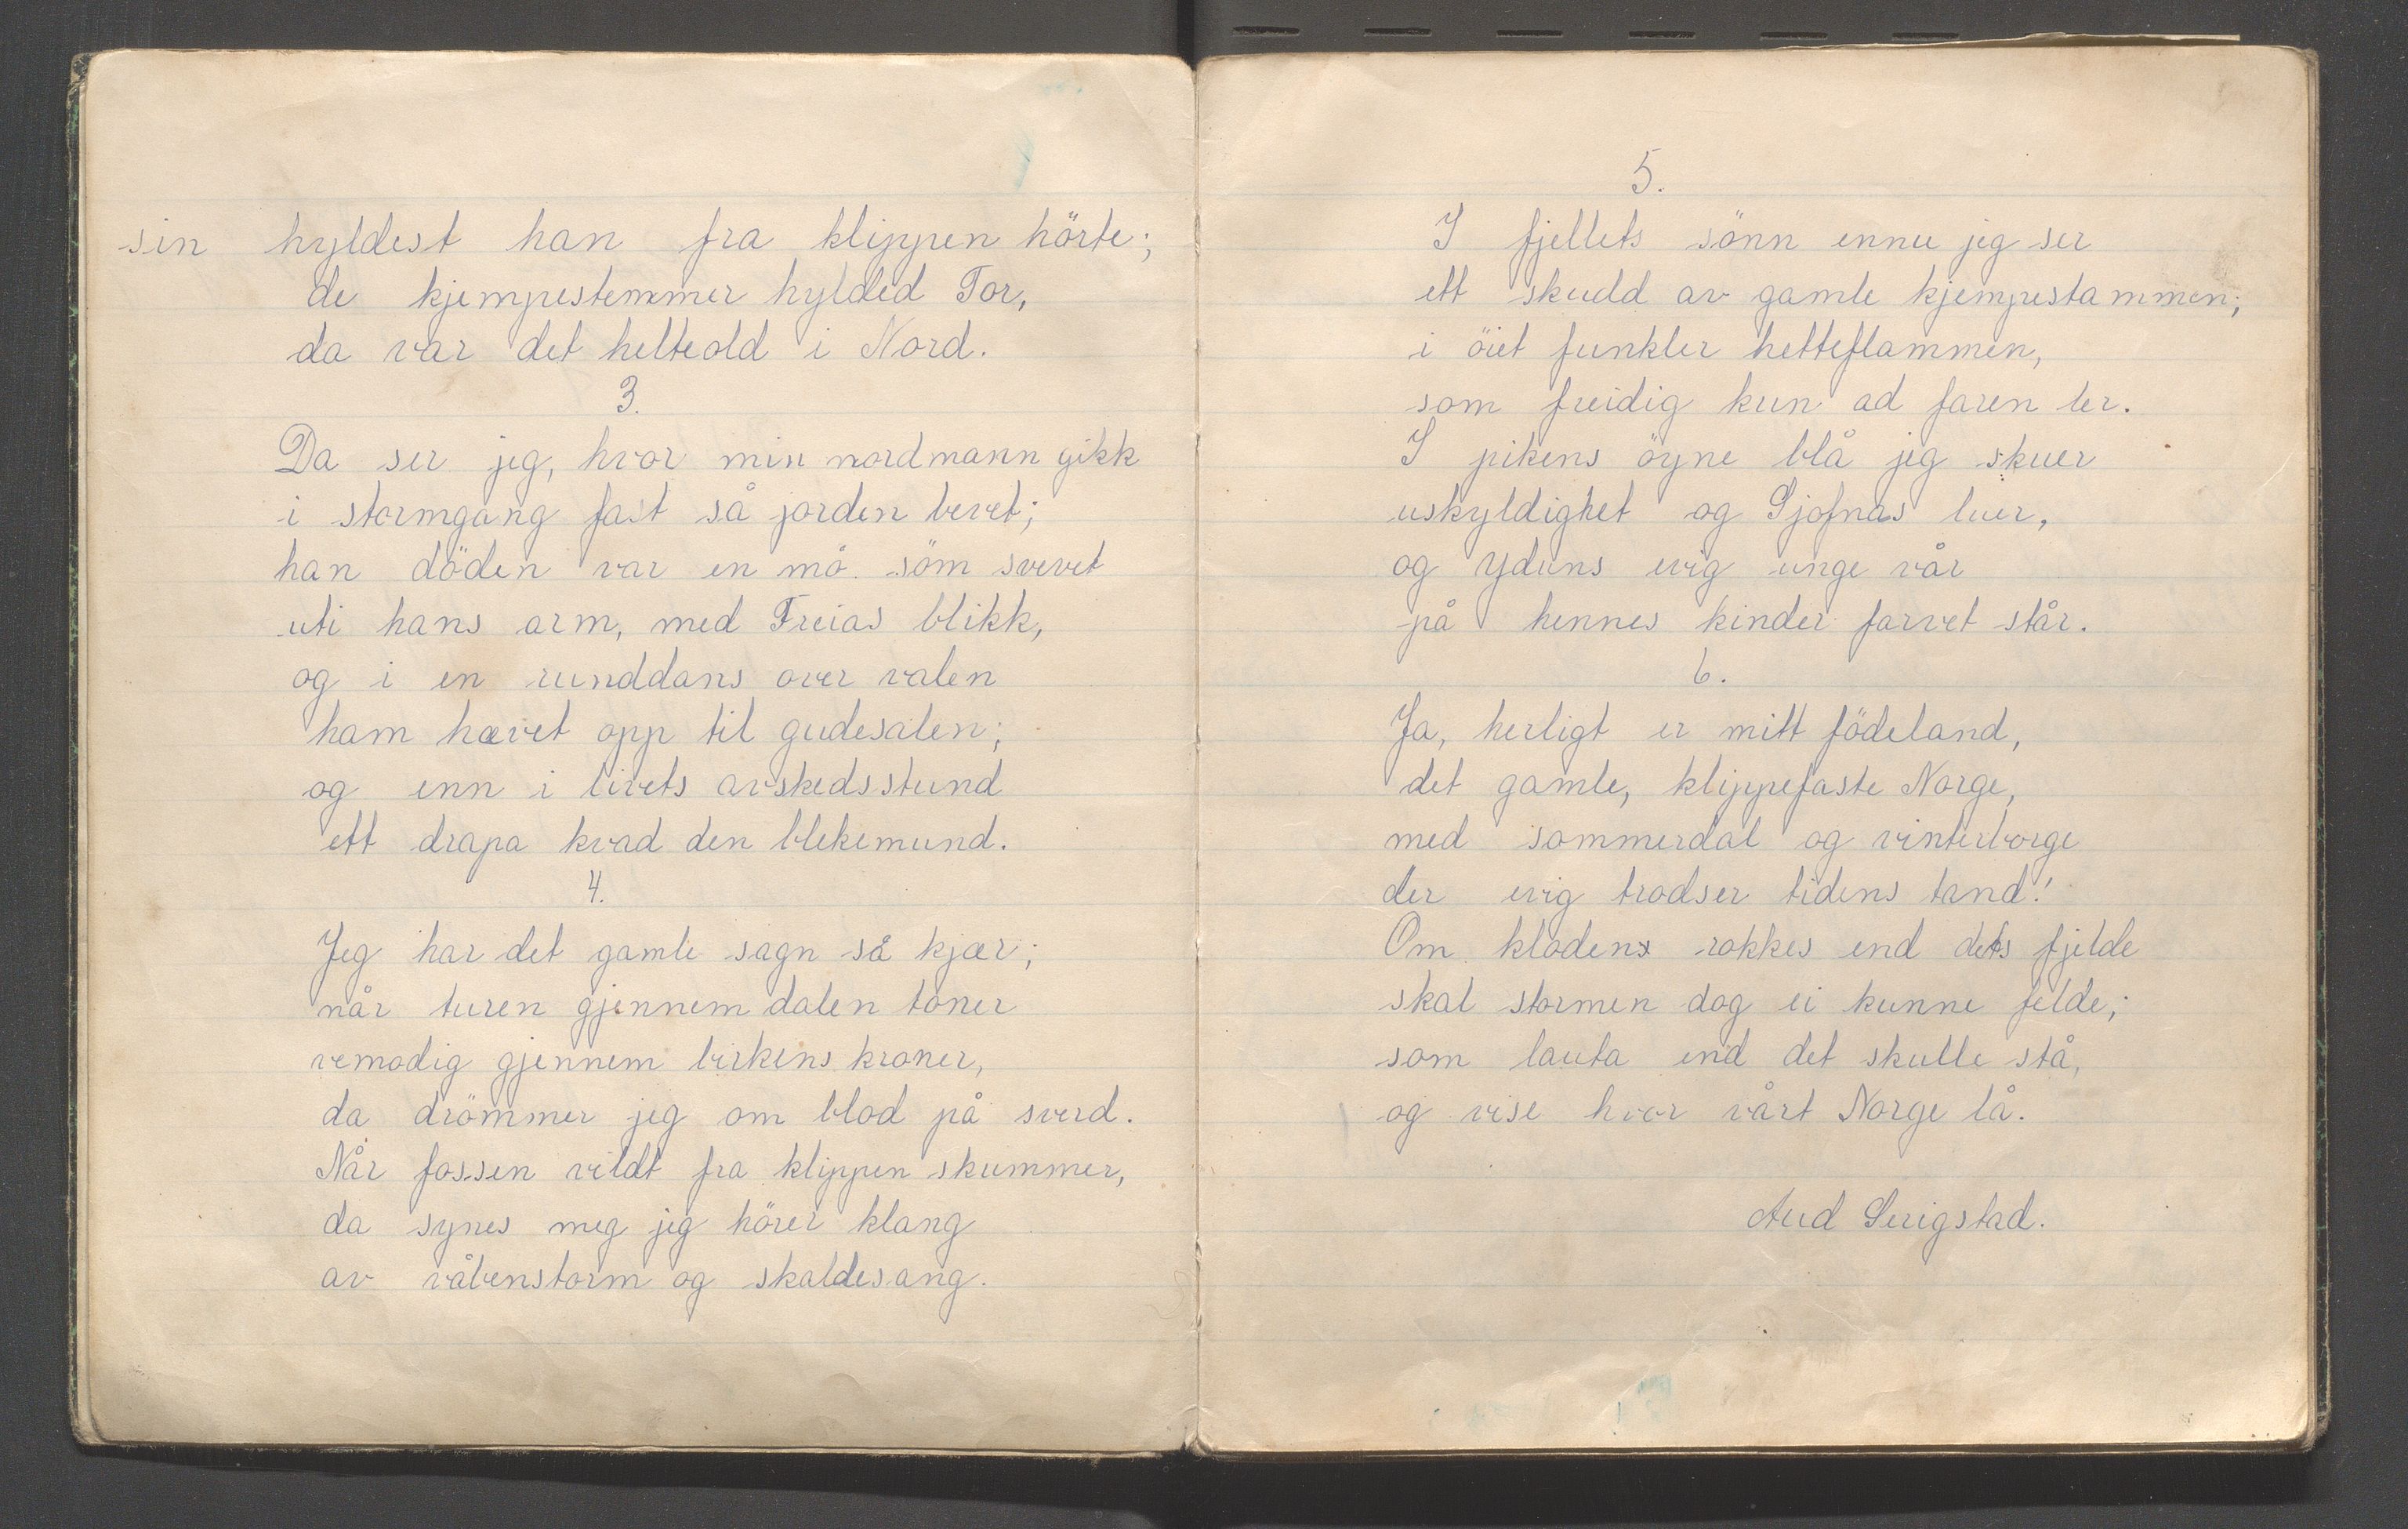 sin hyldest han fra klippen hörte;
de kjempestemmer hylded Tor,
da var det helteold i Nord.
3.
Da ser jeg, hvor min nordmann gikk
i stormgang fast så jorden bevet;
han döden var en mö som svevet
uti hans arm, med Freias blikk,
og i en runddans over valen
ham hævet opp til gudesalen;
og enn i livets avskedsstund
ett drapa kvad den blekemund.
4.
Jeg har det gamle sagn så kjær;
når luren gjennem dalen toner
vemodig gjennem birkens kroner,
da drömmer jeg om blod på sverd.
Når fossen vildt fra klippen skummer,
da synes meg jeg hörer klang
av våbenstorm og skaldesang.
5.
I fjellets sönn ennu jeg ser
ett skudd av gamle kjempestammen;
i öiet funkler helteflammen,
som freidig kun ad faren ler.
I pikens öyne blå jeg skuer
uskyldighet og Sjofnas luer,
og Yduns evig unge vår
på hennes kinder farvet står.
6.
Ja, herligt er mitt födeland,
det gamle, klippefaste Norge,
med sommerdal og vinterborge
der evig trodser tidens tand!
Om klodens rokkes end dets fjelde
skal stormen dog ei kunne felde;
som bauta end det skulle stå,
og vise hvor vårt Norge lå.
Aud Serigstad.